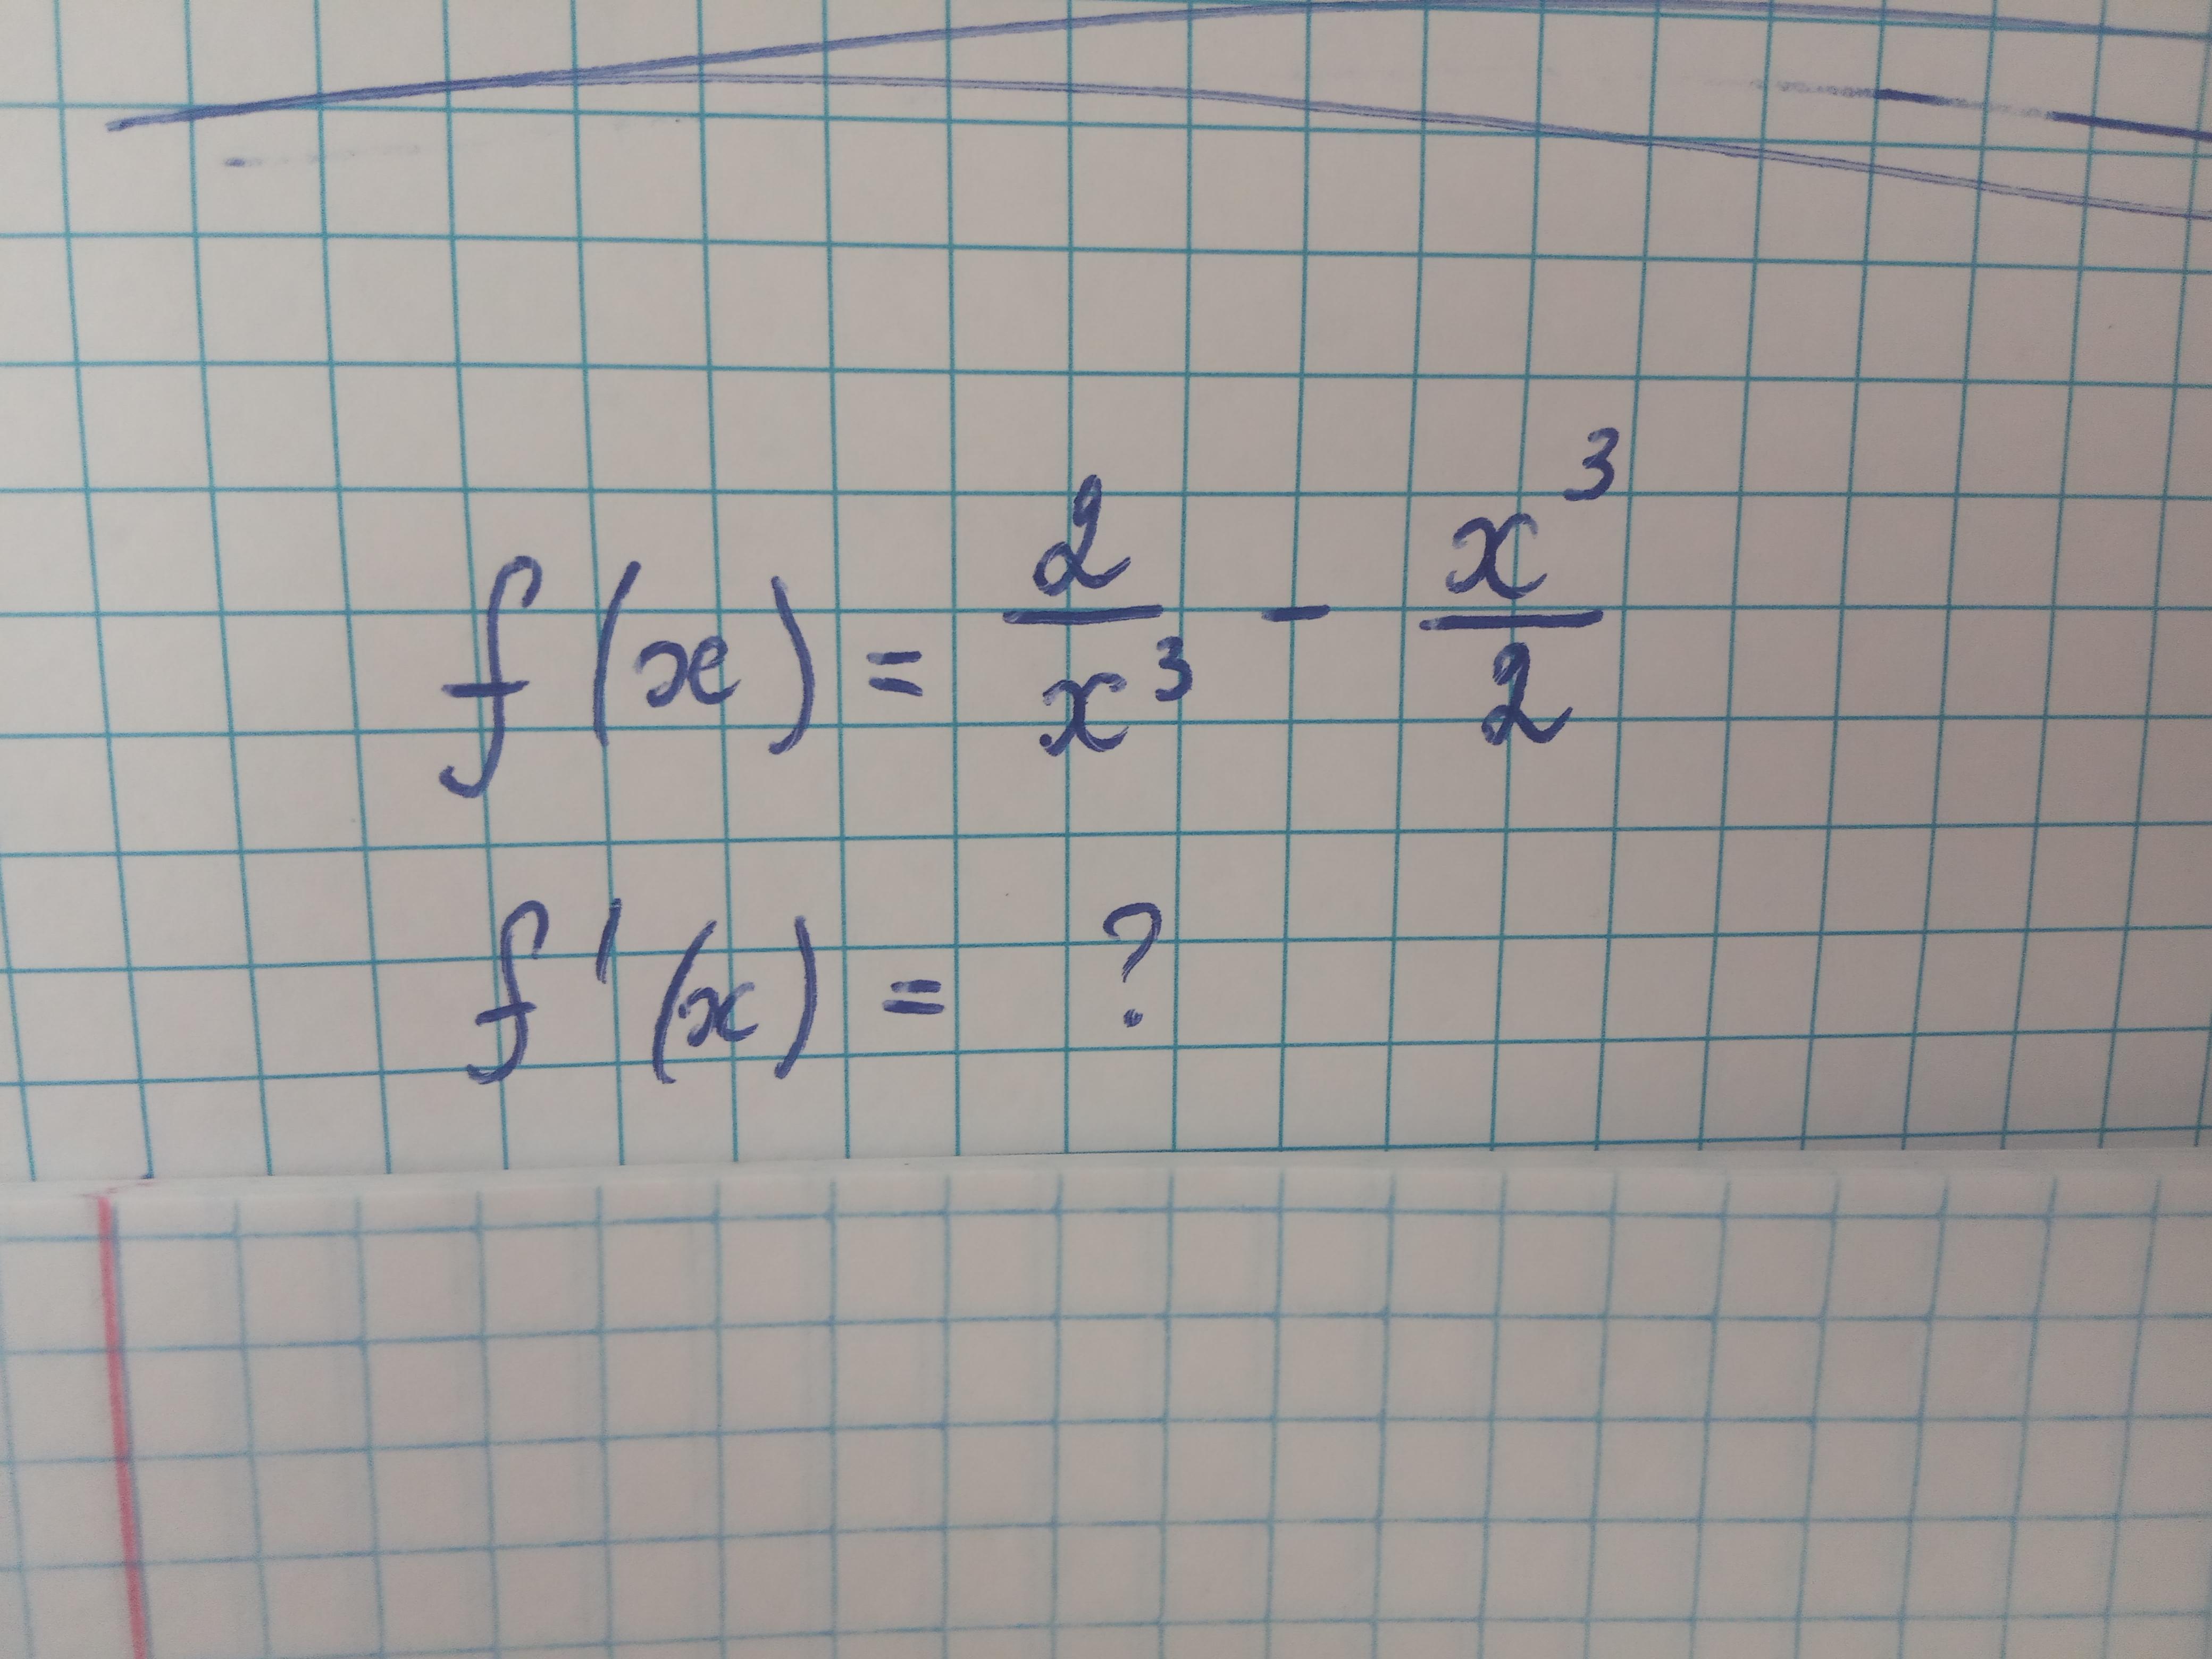 f(x) = 2/x³ - x³/2
f'(x) = ?